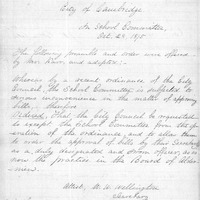 City of Cambridge
In School Committee,
Oct. 23, 1875
The following preamble and order were offered
by Mrs. and adopted:
Whereas by a recent ordinance of the City
Council, the School Committee is subjected to
serious inconvenience in the matter of approving
bills, therefore
Ordered, That the City Council be requested
to except the School Committee from the
operation of the ordinance, and to allow them
to order the approval of bills by their Secretary
as a duly designated and sworn officer, as is
now the practice in the Board of Alder-
men.
Attest, W. W. Wellington
Secretary